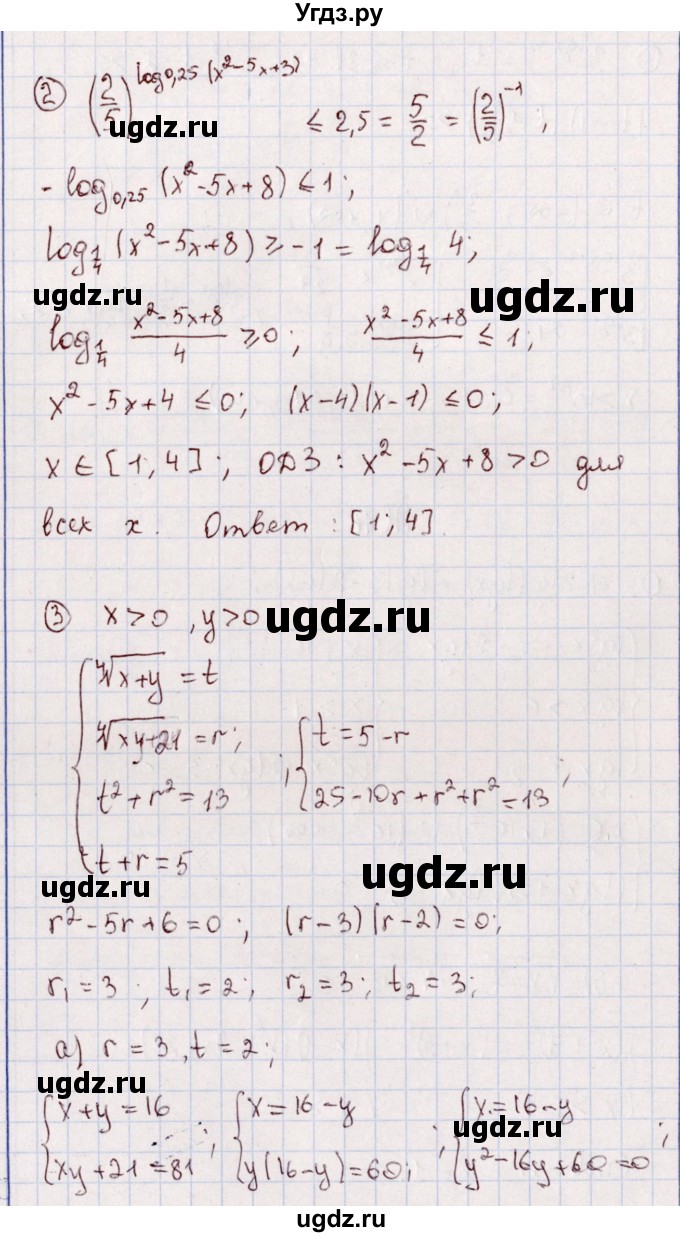 Угдз.ру
② (2/5)^(log₀,₂₅ (x²-5x+3)) ≤ 2,5 = 5/2 = (2/5)⁻¹ ;
ugdz.ru
- log₀,₂₅ (x²-5x+8) ≤ 1 ;
log_(1/4) (x²-5x+8) ≥ -1 = log_(1/4) 4 ;
ugdz.ru ugdz.ru
log_(1/4) (x²-5x+8)/4 ≥ 0 ; (x²-5x+8)/4 ≤ 1 ;
x²-5x+4 ≤ 0 ; (x-4)(x-1) ≤ 0 ;
x ∈ [1; 4] ; ОДЗ : x²-5x+8 > 0 для
всех x. Ответ : [1; 4].
③ x > 0 , y > 0
ugdz.ru
{ ∜(x+y) = t
∜(xy+21) = r ; ; { t = 5 - r
t²+r² = 13 25-10r+r²+r² = 13 ;
t+r = 5
ugdz.ru ugdz.ru
r²-5r+6 = 0 ; (r-3)(r-2) = 0 ;
r₁ = 3 ; t₁ = 2 ; r₂ = 3 ; t₂ = 3 ;
а) r = 3 , t = 2 ;
ugdz.ru
{ x+y = 16 ; { x = 16-y ; { x = 16-y ;
ugdz.ru
xy+21 = 81 y(16-y) = 60 ; y²-16y+60 = 0
ugdz.ru